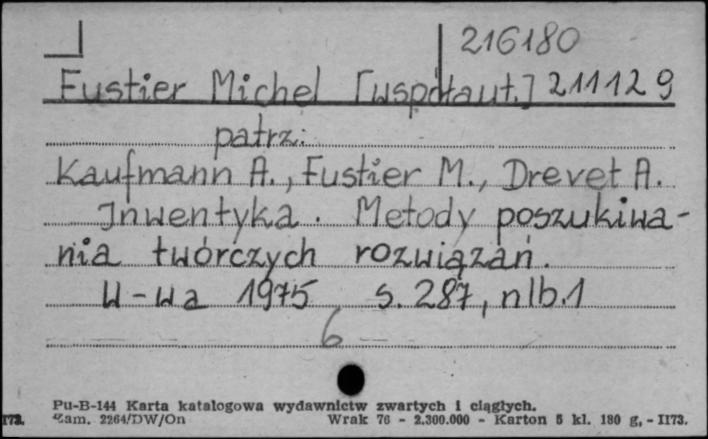 216180
Fustier Michel [współaut.] 211129
patrz:
Kaufmann A., Fustier M., Drevet A.
Inwentyka. Metody poszukiwa-
nia twórczych rozwiązań.
W-wa 1975 s. 287, nlb.1
6
Pu-B-144 Karta katalogowa wydawnictw zwartych i ciągłych.
Zam. 2264/DW/On Wrak 76 - 2.300.000 - Karton 5 kl. 180 g, - II73.